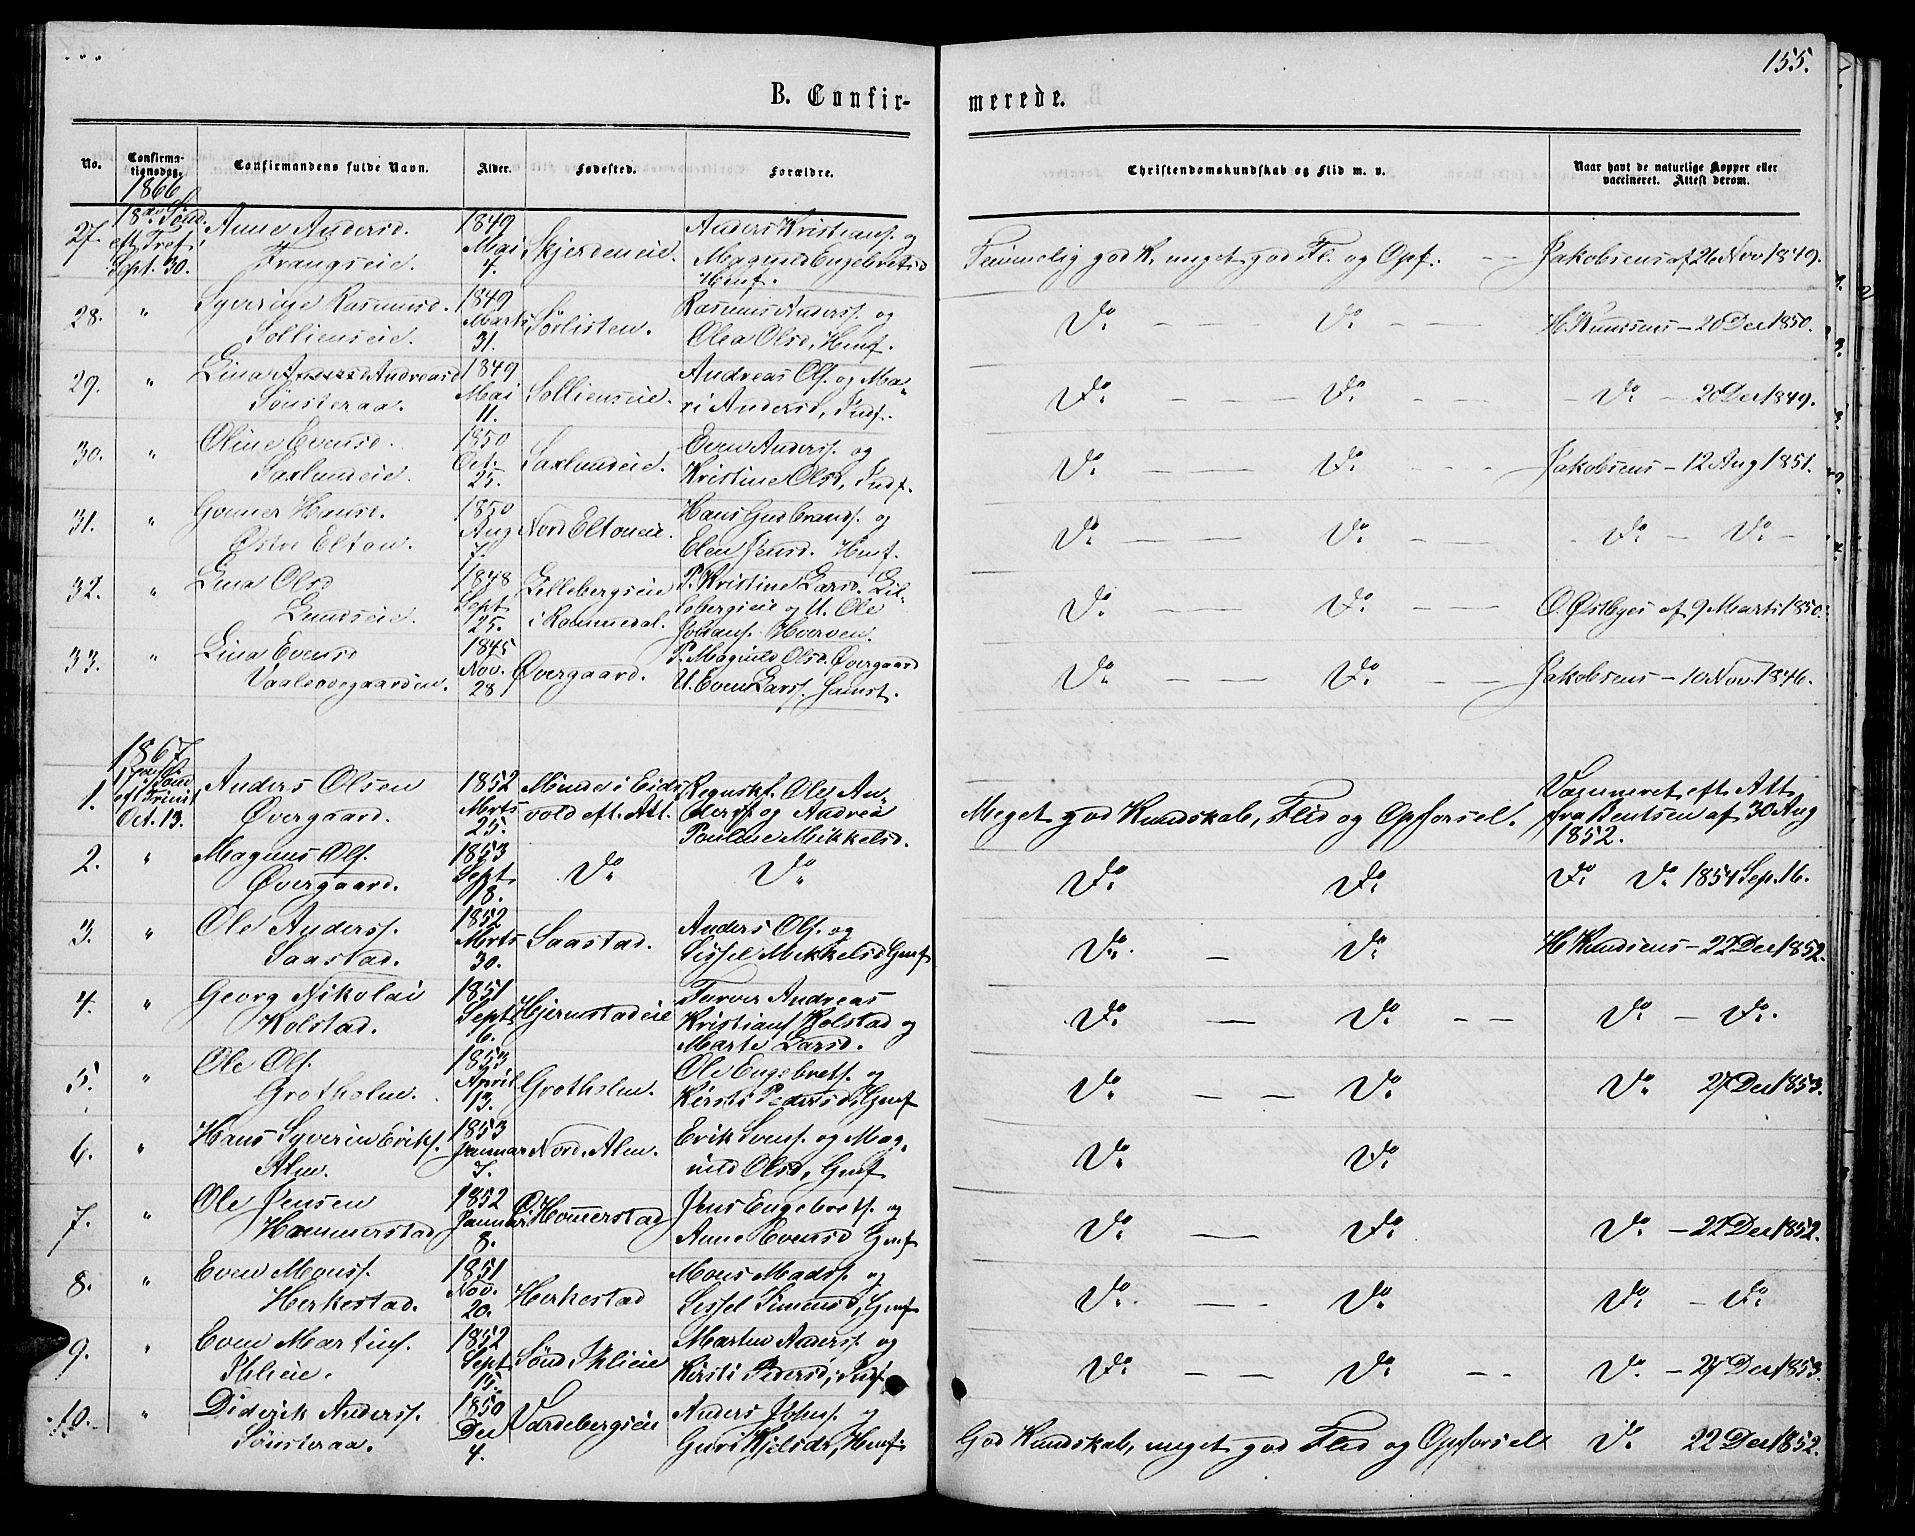 155.
B. Confir- merede.
No. Confirma-tionsdag. Confirmandens fulde Navn. Alder. Fødested. Forældre. Christendomskundskab og Flid m. v. Naar havt de naturlige Kopper eller vaccineret. Attest derom.
1866
27. 18de Sønd. eft Tref. Sept. 30.
Anne Andersd.
Frangseie.
1849 Mai 4.
Skjerdeneie.
Anders Kristians. og
Magnild Engebretsd
Henf.
Temmelig god K. meget god Fl. og Opf.
Jakobsens af 26 Nov 1849.
28. "
Syverine Rasmusd.
Sollienseie.
1849 Marts 31.
Sørlisten.
Rasmus Anderss. og
Olea Olsd, Henf.
Do. — — — Do. — — —
H Knudsens — 20 Dec 1850.
29. "
Lina Andreasd
Sønsteraa.
1849 Mai 11.
Sollienseie.
Andreas Ols. og Ma-
ri Andersd, Indf.
Do. — — — Do. — — —
Do. — 20 Dec 1849.
30. "
Oline Evensd.
Saxlundeie.
1850 Oct. 25.
Saxlundeie.
Even Anderss. og
Kristine Olsd, Indf.
Do. — — — Do. — — —
Jakobsens — 12 Aug 1851.
31. "
Gunner Hansd.
Østre Elton.
1850 Aug 7.
Nord Eltoneie.
Hans Gudbrands. og
Elen Jensd. Henf.
Do. — — — Do. — — —
Do. — Do. —
32. "
Lina Olsd
Lundseie.
1848 Sept 25.
Lillebergseie
i Rommedal.
P. Kristine Larsd. Lil-
lebergseie og U. Ole
Johans. Hverven.
Do. — — — Do. — — —
O. Østbyes af 9 Marts 1850.
33. "
Lina Evensd
Vaaleødegaarden.
1845 Nov. 28
Øvergaard.
P. Magnild Olsd. Øvergaard
U. Even Larss. Samst.
Do. — — Do. — —
Jakobsens — 10 Nov. 1846.
1867
1. 17de Sønd eft Trinit. Oct. 13.
Anders Olsen
Øvergaard.
1852 Mrts 25.
Minde i Eids-
vold eft. Att.
Regnskf. Ole An-
derss. og Andrea
Pouline Mikkelsd.
Meget god Kundskab, Flid og Opførsel.
Vaccineret eft Att
fra Bentsen af 30 Aug
1852.
2. "
Magnus Ols.
Øvergaard.
1853 Sept 18.
Do.
Do.
Do. Do.
Do. Do. 1854 Sep. 16.
3. "
Ole Anderss.
Saastad.
1852 Mrts 30.
Saastad.
Anders Ols. og
Sissel Mikkelsd Gmf
Do. — Do.
H Knudsens — 22 Dec 1852.
4. "
Georg Nikolai
Kolstad.
1851 Sept 6.
Hjernstadeie
Farver Andreas
Kristians Kolstad og
Marte Larsd.
Do. — Do. — —
Do. — Do.
5. "
Ole Ols.
Grotholm.
1853 April 13.
Grotholm.
Ole Engebrets. og
Kirsti Pedersd, Gmf
Do. — — Do.
Do. 27 Dec 1853.
6. "
Hans Syverin Eriks.
Alm.
1853 Januar 7.
Nord. Alm.
Erik Svens. og Mag-
nild Olsd, Gmf
Do. Do.
7. "
Ole Jensen
Hammerstad
1852 Januar 8.
Ø. Homerstad
Jens Engebrets. og
Anne Evensd Gmf
Do. — Do.
Do. — 22 Dec 1852.
8. "
Even Monss.
Herkestad.
1851 Nov. 20.
Herkestad
Mons Madss. og
Sissel Simensd, Gmf
Do. — — Do.
Do. — Do.
9. "
Even Martins.
Sklieie.
1852 Sept 15.
Sønd. Sklieie
Martin Anderss. og
Kirsti Pedersd, Indf
Do. — — Do. — —
Do. — 27 Dec 1853.
10. "
Diderik Anderss.
Sønsteraa.
1850 Dec 4.
Vardebergseie
Anders Johns. og
Guri Kjelsdr, Henf.
God Kundskab, meget god Flid og Opførsel
Do. 22 Dec 1852.